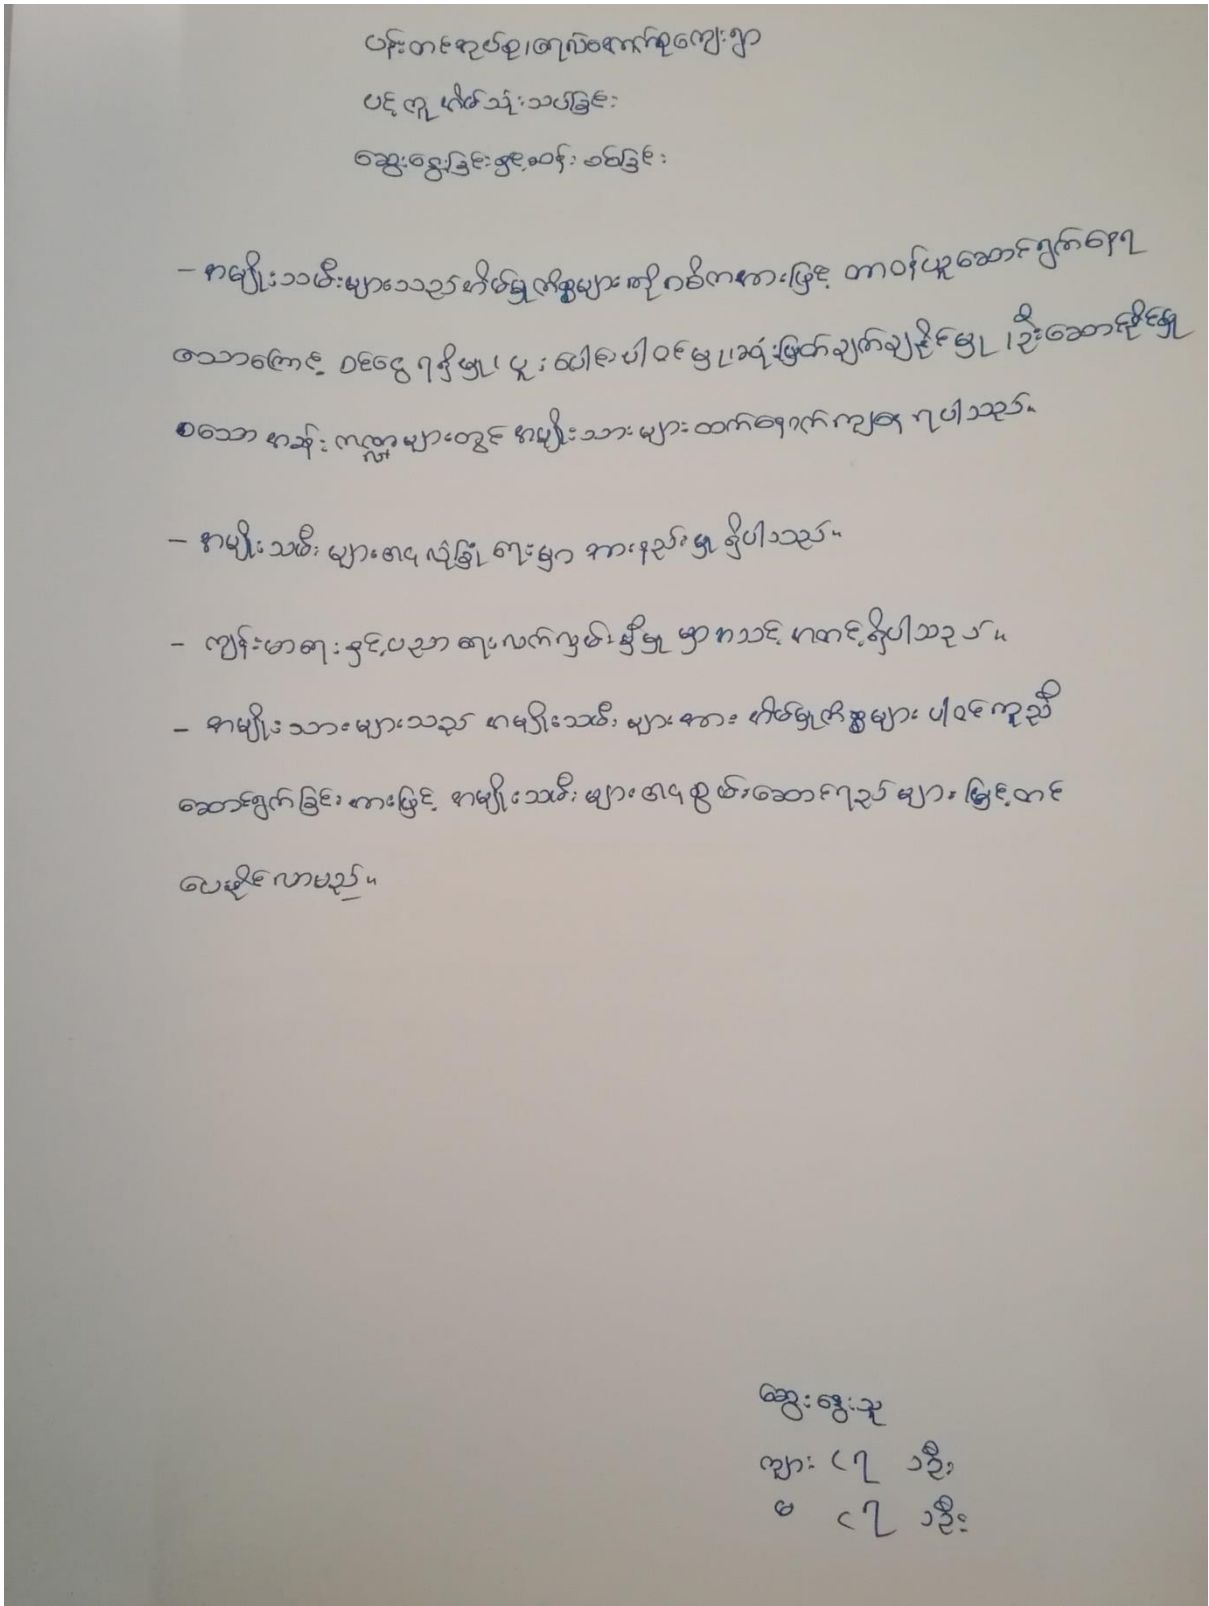 ပန်းတင်အုပ်စု၊
ပင့်ကူ အိမ်သုံးသပ်ခြင်း
ဆွေးနွေးခြင်းနှင့်ဆန်းစစ်ခြင်း
- အမျိုးသမီးများသည် အိမ်မှုကိစ္စများကို အဓိကအားဖြင့် တာဝန်ယူဆောင်ရွက်နေရ
သောကြောင့် ဝင်ငွေရရှိမှု၊ ပူးပေါင်းပါဝင်မှု၊ ဆုံးဖြတ်ချက်ချနိုင်မှု၊ ဦးဆောင်နိုင်မှု
စသော အခန်းကဏ္ဍများတွင် အမျိုးသားများထက်နောက်ကျနေရပါသည်။
- အမျိုးသမီးများ၏ လုံခြုံရေးမှာ အားနည်းမှု ရှိပါသည်။
- ကျန်းမာရေးနှင့်ပညာရေးလက်လှမ်းမှီမှု မှာ အသင့်အတင့်ရှိပါသည်။
- အမျိုးသားများသည် အမျိုးသမီးများအား အိမ်မှုကိစ္စများ ပါဝင်ကူညီ
ဆောင်ရွက်ခြင်းအားဖြင့် အမျိုးသမီးများ၏စွမ်းဆောင်ရည်များ မြှင့်တင်
ပေးနိုင်လာမည်။
ဆွေးနွေးသူ
ကျား ၎ရ ၁ဦး
မ ၎ရ ၁ဦး